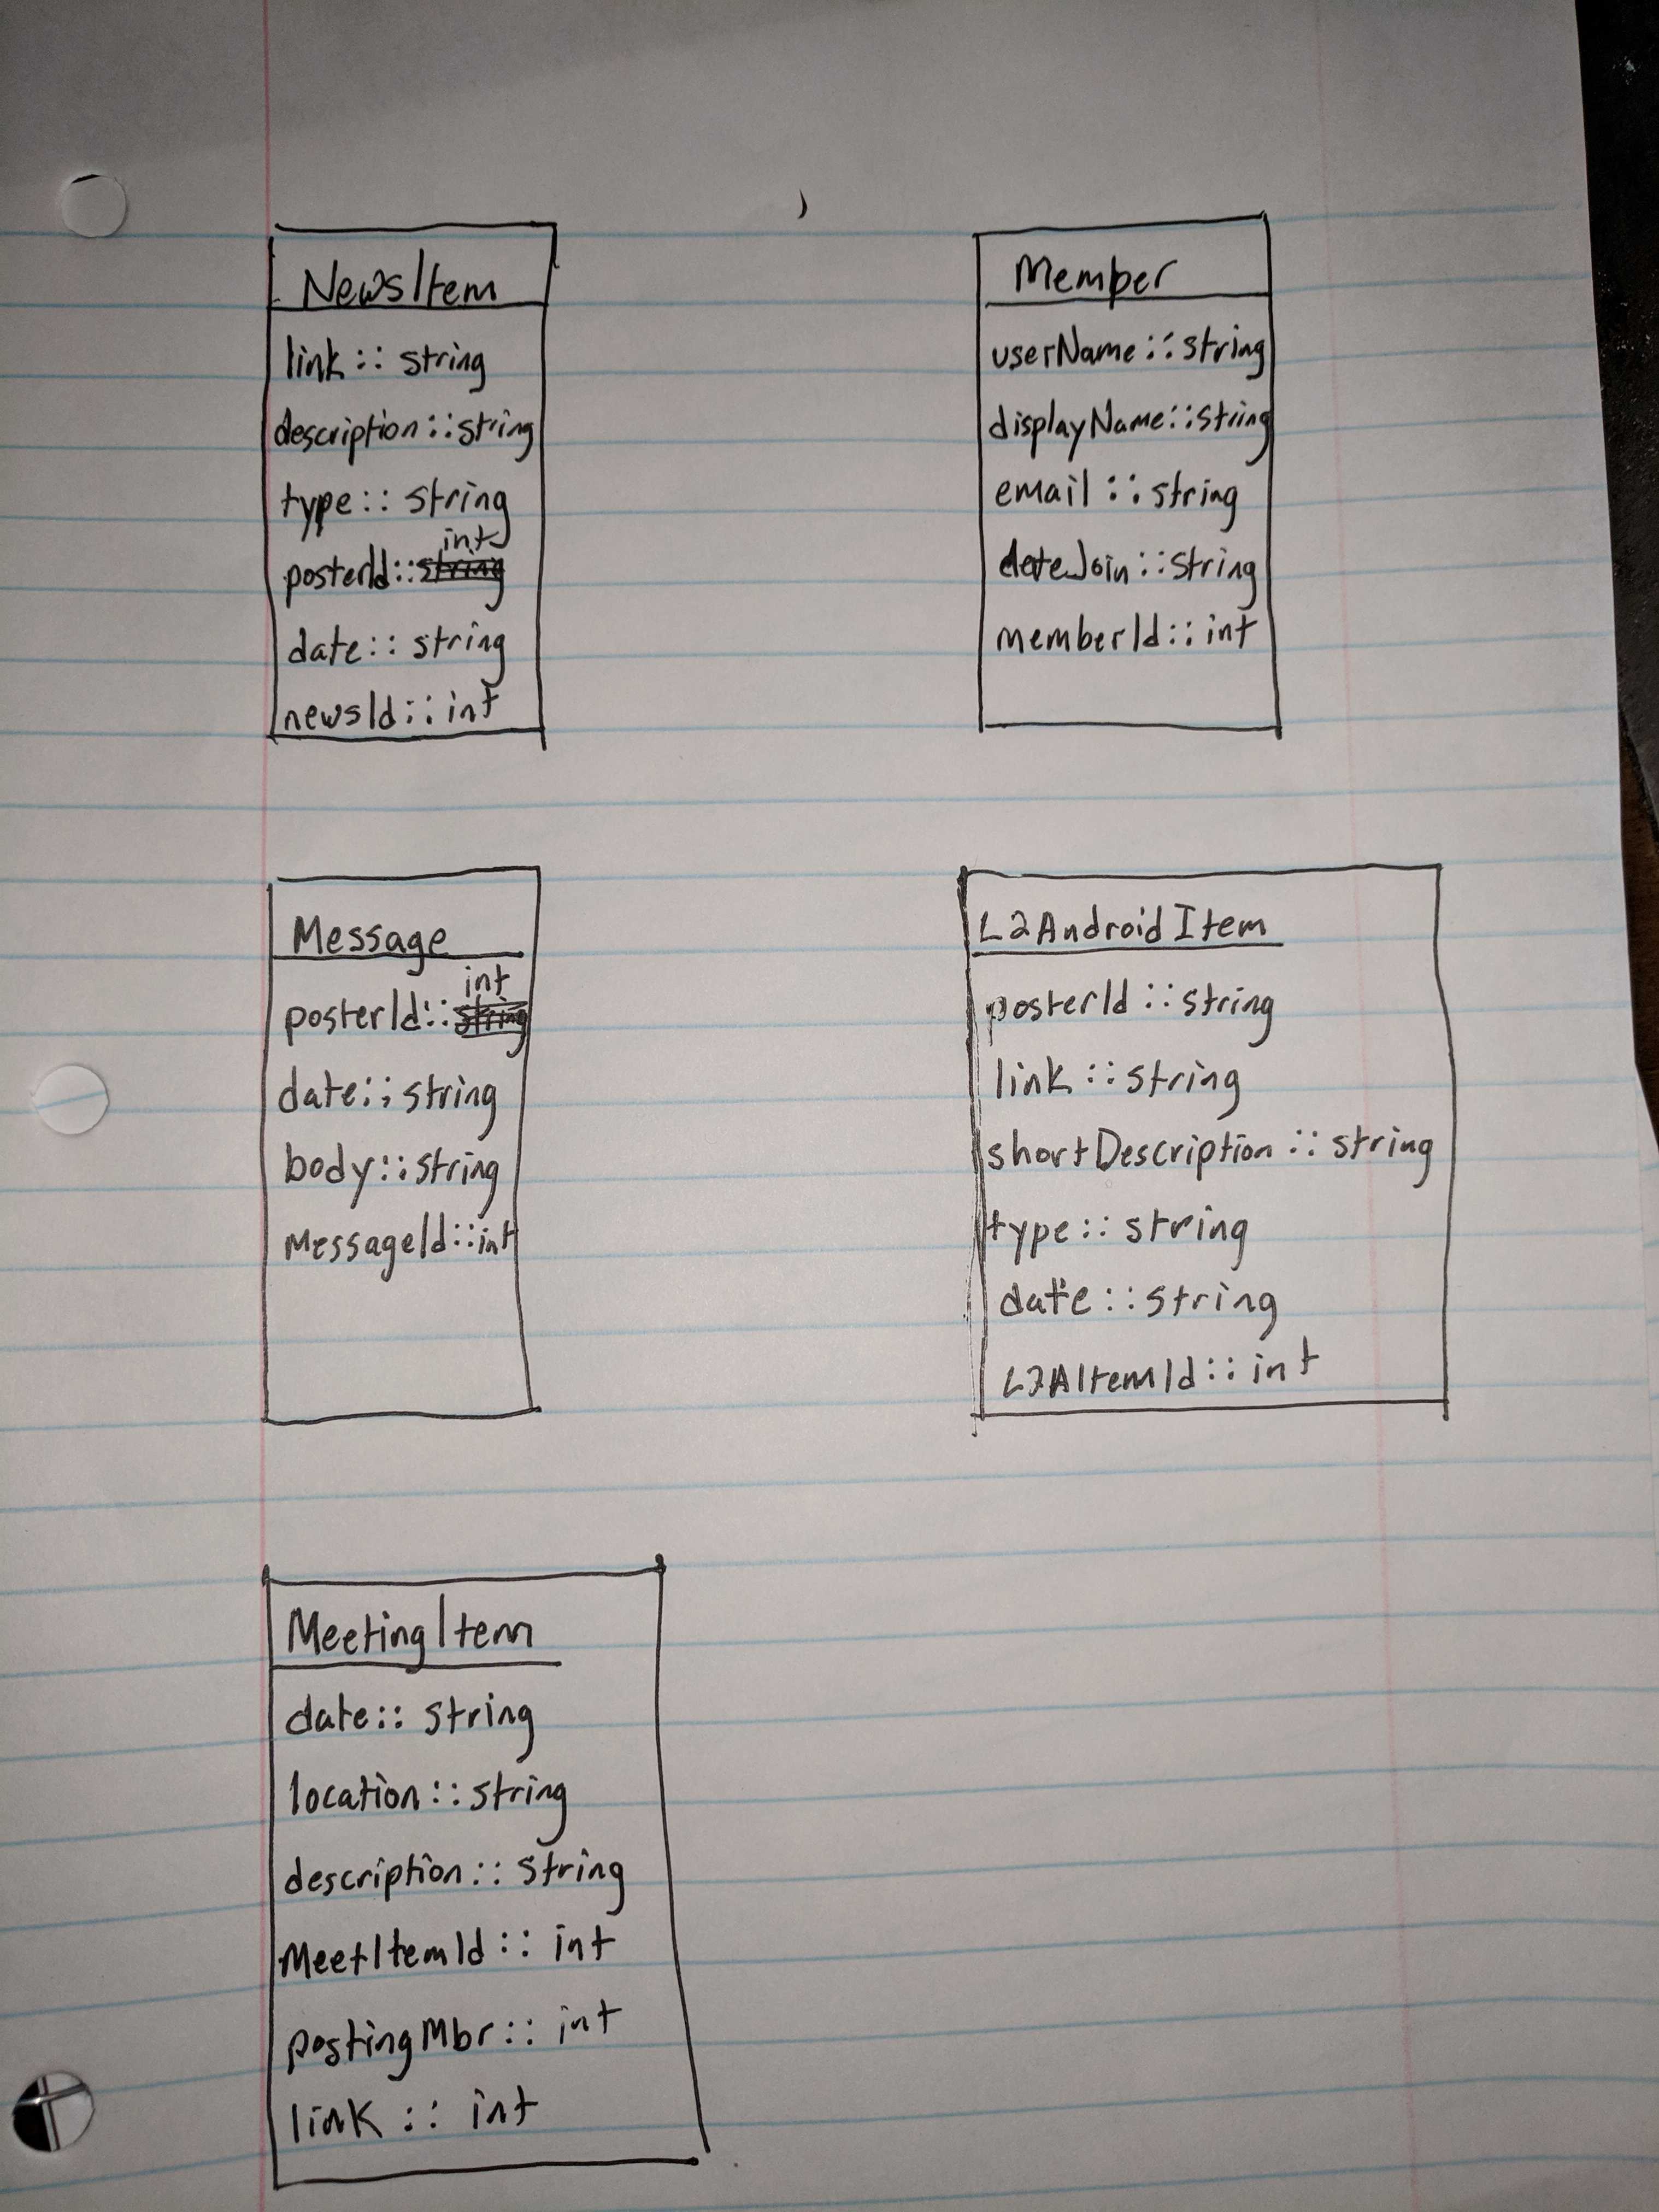 NewsItem
link :: string
description :: string
type :: string
int
posterId :: string
date :: string
newsId :: int
Member
userName :: string
displayName :: string
email :: string
dateJoin :: string
memberId :: int
Message
int
posterId :: string
date :: string
body :: string
MessageId :: int
L2AndroidItem
posterId :: string
link :: string
shortDescription :: string
type :: string
date :: string
L2AItemId :: int
MeetingItem
date :: string
location :: string
description :: string
MeetItemId :: int
postingMbr :: int
link :: int